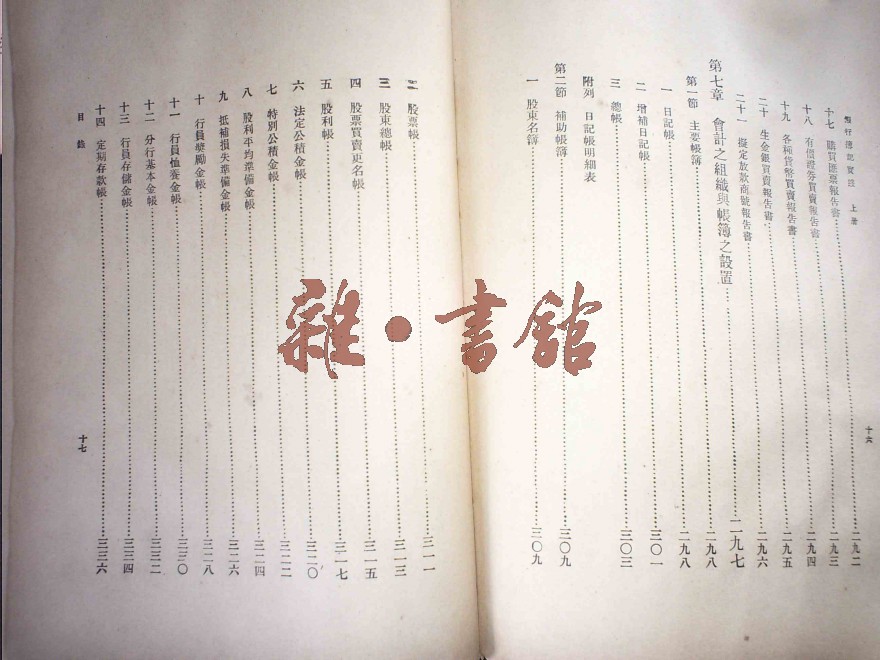 銀行簿記實踐　上册
十七　購買匯票報告書……二九二
十八　有價證券買賣報告書……二九三
十九　各種貨幣買賣報告書……二九四
二十　生金銀買賣報告書……二九五
二十一　擬定放款商號報告書……二九六
第七章　會計之組織與帳簿之設置……二九七
第一節　主要帳簿……二九八
一　日記帳……二九八
二　增補日記帳……三〇一
三　總帳……三〇三
附列　日記帳明細表
第二節　補助帳簿……三〇九
一　股東名簿……三〇九
十六
二　股票帳……三一一
三　股東總帳……三一三
四　股票買賣更名帳……三一五
五　股利帳……三一七
六　法定公積金帳……三二〇
七　特別公積金帳……三二二
八　股利平均準備金帳……三二四
九　抵補損失準備金帳……三二六
十　行員獎勵金帳……三二八
十一　行員恤養金帳……三三〇
十二　分行基本金帳……三三二
十三　行員存儲金帳……三三四
十四　定期存款帳……三三六
目錄
十七
雜·書館